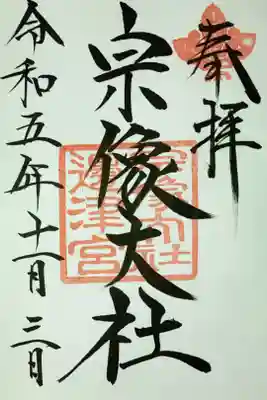 奉拝
宗像大社
宗像大社
邊津宮
令和五年十一月三日